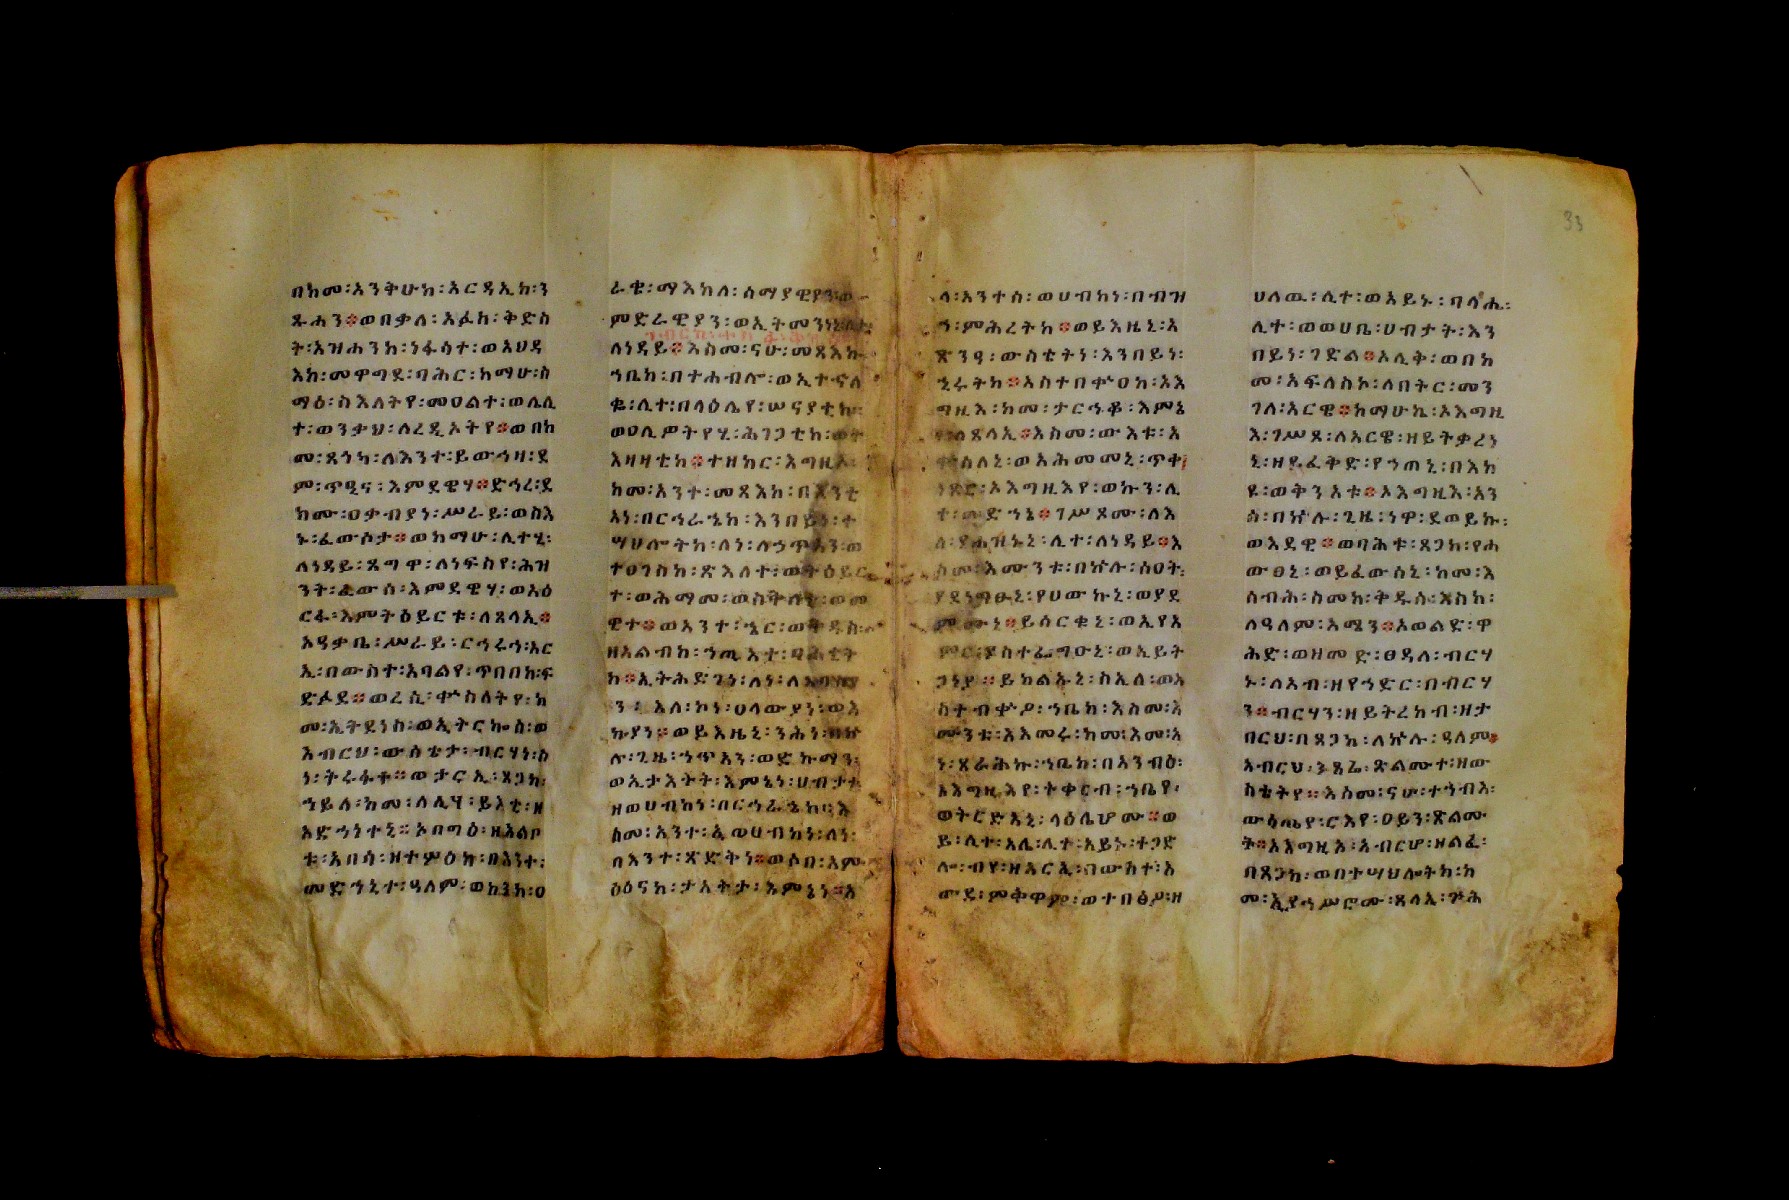 በከመ፡አንትሁከ፡አርዳኢከ፡ን
ጹሐን፨ወበቃለ፡አፈከ፡ቅድስ
ት፡አዝሐንከ፡ነፋሳተ፡ወአህዳ
እከ፡መዋግደ፡ባሕር፡ከማሁ፡ስ
ማዕ፡ስእለትየ፡መዐልተ፡ወሌሊ
ተ፡ወንቃህ፡ለረዲኦትየ፨ወበከ
መ፡ጸጎካ፡ለእንተ፡ይውኅዛ፡ደ
ም፡ጥዒና፡እምደዌሃ፨ድኅረ፡ደ
ከሙ፡ዐቃብያነ፡ሥራይ፡ወስእ
ኑ፡ፈውሶታ፨ወከማሁ፡ሊተሂ፡
ለነዳይ፡ጸግዋ፡ለነፍስየ፡ሕዝ
ንት፡ፈውሰ፡እምደዌሃ፡ወአዕ
ርፋ፡እምትዕይርቱ፡ለጸላኢ፨
አዓቃቤ፡ሥራይ፡ርኅሩኅ፡አር
ኢ፡በውስተ፡አባልየ፡ጥበበከ፡ፍ
ድፉደ፨ወረሲ፡ቍስለትየ፡ከ
መ፡ኢትደነስ፡ወኢትርኰስ፡ወ
አብርህ፡ውስቴታ፡ብርሃነ፡ስ
ነ፡ትሩፋቱ፨ወታርኢ፡ጸጋከ፡
ኀይለ፡ከመ፡ለሊሃ፡ይእቲ፡ዘ
አድኀነተኒ፨ኦበግዕ፡ዘእልቦ
ቱ፡አበሳ፡ዘተሦዕከ፡በእንተ፡
መድኀኒተ፡ዓለም፡ወከያከ፡ዐ
ራቂ፡ማእከለ፡ሰማያዊያን፡ወ
ምድራዊያን፡ወኢትመንነኒ፡ሊተ፡
ለነዳይ፨እስመ፡ናሁ፡መጻእኩ
ኀቤከ፡በተሐብሎ፡ወኢተኆለ
ቈ፡ሊተ፡በላዕሌየ፡ሠናያቲከ፡
ወዐሊዎትየሂ፡ሕገጋቲከ፡ወት
እዛዛቲከ፨ተዘከር፡እግዚኦ፡
ከመ፡አንተ፡መጻእከ፡በእንቲ
አነ፡በርኅራኄከ፡እንበይነ፡ተ
ሣህሎትከ፡ለነ፡ለኃጥአን፡ወ
ተዐገስከ፡ጽእለተ፡ወትዕይር
ተ፡ወሕማመ፡ወስቅለተ፡ወመ
ዊተ፨ወአንተ፡ኄር፡ወቅዱስ፡
ዘአልብከ፡ኀጢአተ፡ባሕቲት
ከ፨ኢትሕድገነ፡ለነ፡ለአግብርቲከ
ን፡እለ፡ኮነ፡ዐላውያነ፡ወእ
ኩያን፨ወይእዜኒ፡ንሕነ፡በኵ
ሉ፡ጊዜ፡ኀጥአን፡ወድኩማን፡
ወኢታእትት፡እምኔነ፡ሀብታተ
ዘወሀብከነ፡በርኅራኄከ፡እ
ስመ፡አንተ፡ኢወሀብከነ፡ለነ፡
በእንተ፡ጽድቅነ፨ወሶበ፡እም
ዕዕናከ፡ታእትታ፡እምኔነ፨አ
ላ፡አንተሰ፡ወሀብከነ፡በብዝ
ኀ፡ምሕረትከ፨ወይእዜኒ፡አ
ጽንዓ፡ውስቴትነ፡እንበይነ፡
ኂሩትከ፨አስተበቍዐከ፡አእ
ግዚእ፡ከመ፡ታርኅቆ፡እምኔ
የ፡ለጸላኢ፨እስመ፡ውእቱ፡አ
ቍሰለኒ፡ወአሕመመኒ፡ጥቀ፡
ነጽር፡ኦእግዚእየ፡ወኩን፡ሊ
ተ፡መድኀኔ፨ገሥጾሙ፡ለእ
ለ፡ያሐዝኑኒ፡ሊተ፡ለነዳይ፨እ
ስመ፡እሙንቱ፡በኵሉ፡ሰዐት፡
ያደነግፁኒ፡የሀውኩኒ፡ወያደ
ምሙኒ፨ይሰርቁኒ፡ወኢየአ
ምር፡ይስተፌግዑኒ፡ወኢይት
ጋነያ፨ይከልኡኒ፡ስኢለ፡ወአ
ስተብቍዖ፡ኀቤከ፡እስመ፡እ
ሙንቱ፡አእመሩ፡ከመ፡እመ፡አ
ነ፡ጸራሕኩ፡ኀቤከ፡በአንብዕ፡
አእግዚእየ፡ተቀርብ፡ኀቤየ፡
ወትረድአኒ፡ላዕሌሆሙ፨ወ
ይ፡ሊተ፡አሌ፡ሊተ፡አይኑ፡ተጋድ
ሎ፡ብየ፡ዘአርኢ፡በውስተ፡አ
ሙደ፡ምቅዋም፡ወተበፅዖ፡ዘ
ሀለዉ፡ሊተ፡ወአይኑ፡ባላሒ፡
ሊተ፡ወወሀቤ፡ሀብታት፡እን
በይነ፡ገድል፨ኦሊቅ፡ወበከ
መ፡አፍለስኮ፡ለበትር፡መን
ገለ፡አርዌ፨ከማሁኬ፡ኦእግዚ
እ፡ገሥጸ፡ለአርዌ፡ዘይትቃረነ
ኒ፡ዘይፈቅድ፡የኀጠኒ፡በእከ
ዩ፡ወቅንአቱ፨ኦእግዚእ፡አን
ሰ፡በኵሉ፡ጊዜ፡ነዋ፡ደወይኩ፡
ወእደዊ፨ወባሕቱ፡ጸጋከ፡የሐ
ውፀኒ፡ወይፈውሰኒ፡ከመ፡እ
ሰብሕ፡ስመከ፡ቅዱሰ፡እስከ፡
ለዓለም፡አሜን፨አወልድ፡ዋ
ሕድ፡ወዘመድ፡ፀዳለ፡ብርሃ
ኑ፡ለአብ፡ዘየኀድር፡በብርሃ
ን፨ብርሃን፡ዘይትረከብ፡ዘታ
በርህ፡በጸጋከ፡ለኵሉ፡ዓለም፨
አብርህ፡ኃጸፌ፡ጽልመተ፡ዘው
ስቴትየ፨እስመ፡ናሁ፡ተኀብአ፡
ውስጤየ፡ርእየ፡ዐይን፡ጽልሙ
ት፨አእግዚእ፡አብርሆ፡ዘልፈ፡
በጸጋከ፡ወበተሣህሎትከ፡ከ
መ፡ኢያኅሥሮሙ፡ጸላኢ፡ጕሕ